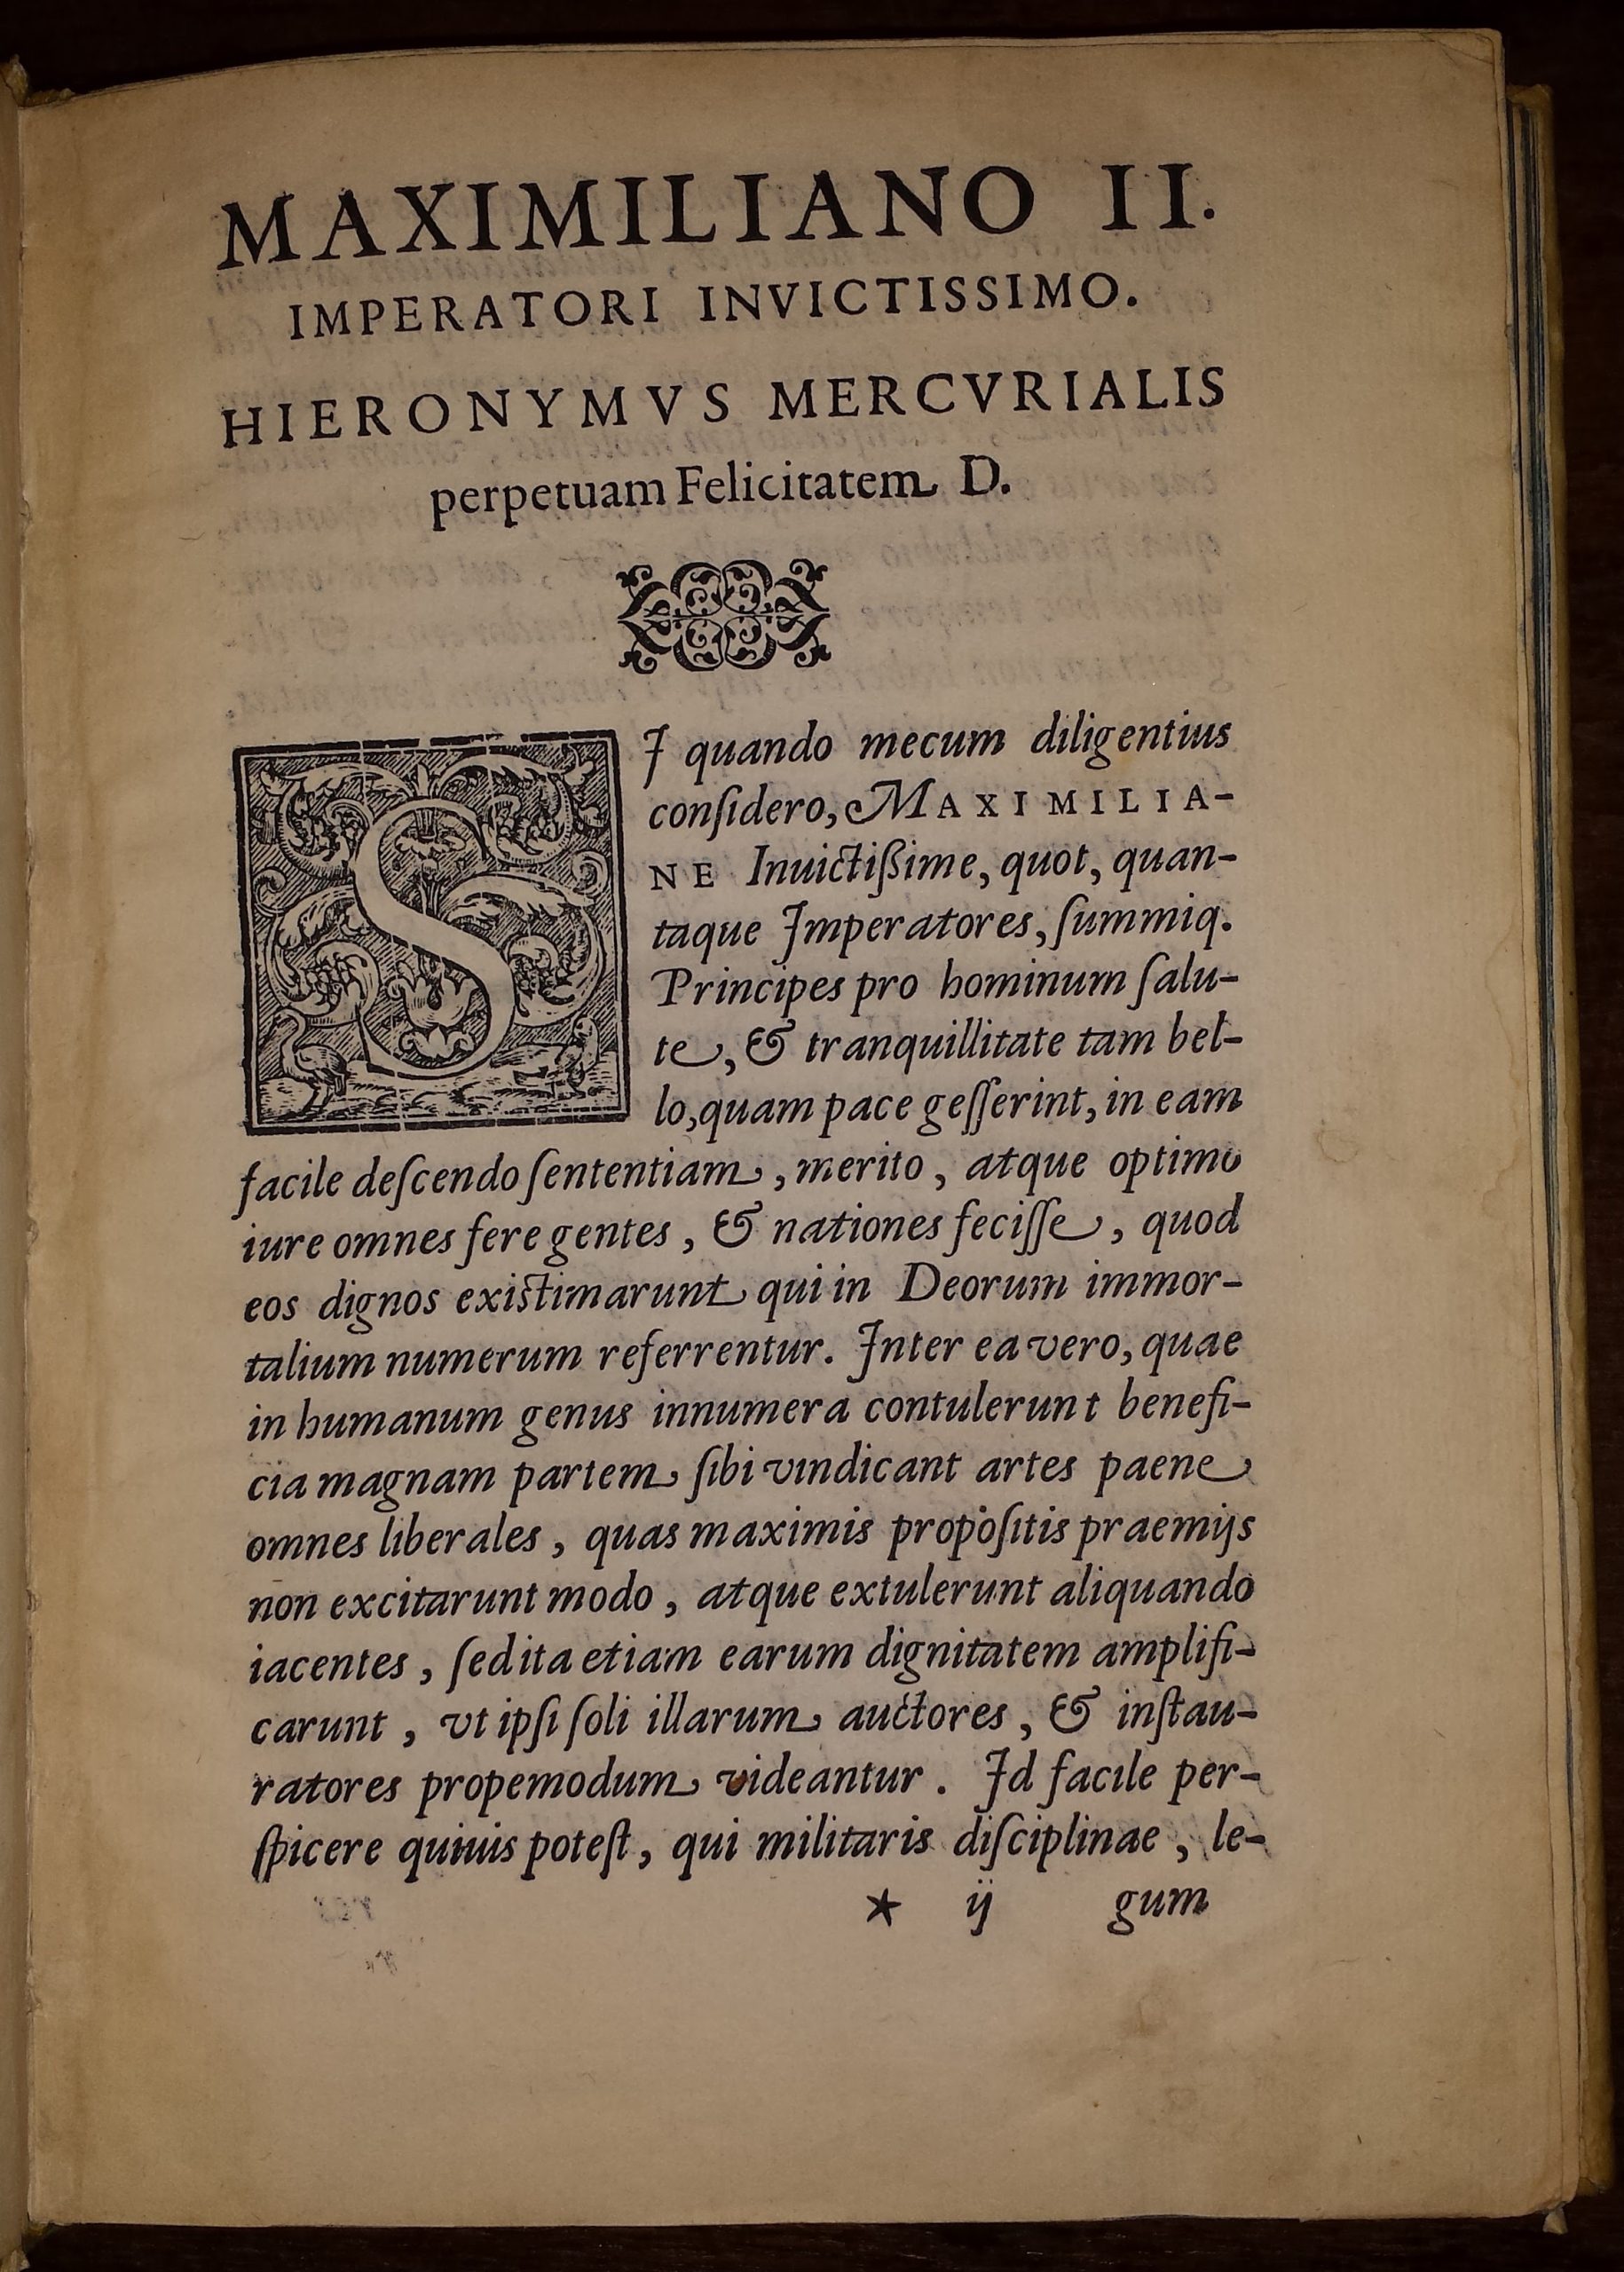 MAXIMILIANO II.
IMPERATORI INVICTISSIMO.
HIERONYMVS MERCVRIALIS
perpetuam Felicitatem D.
SI quando mecum diligentius
conſidero, MAXIMILIA-
NE Inuictißime, quot, quan-
taque Imperatores, ſummiq.
Principes pro hominum ſalu-
te, & tranquillitate tam bel-
lo, quam pace geſſerint, in eam
facile deſcendo ſententiam, merito, atque optimo
iure omnes fere gentes, & nationes feciſſe, quod
eos dignos exiſtimarunt qui in Deorum immor-
talium numerum referrentur. Inter ea vero, quae
in humanum genus innumera contulerunt benefi-
cia magnam partem ſibi vindicant artes paene
omnes liberales, quas maximis propoſitis praemijs
non excitarunt modo, atque extulerunt aliquando
iacentes, ſed ita etiam earum dignitatem amplifi-
carunt, vt ipſi ſoli illarum auctores, & inſtau-
ratores propemodum videantur. Id facile per-
ſpicere quiuis poteſt, qui militaris diſciplinae, le-
* ij gum